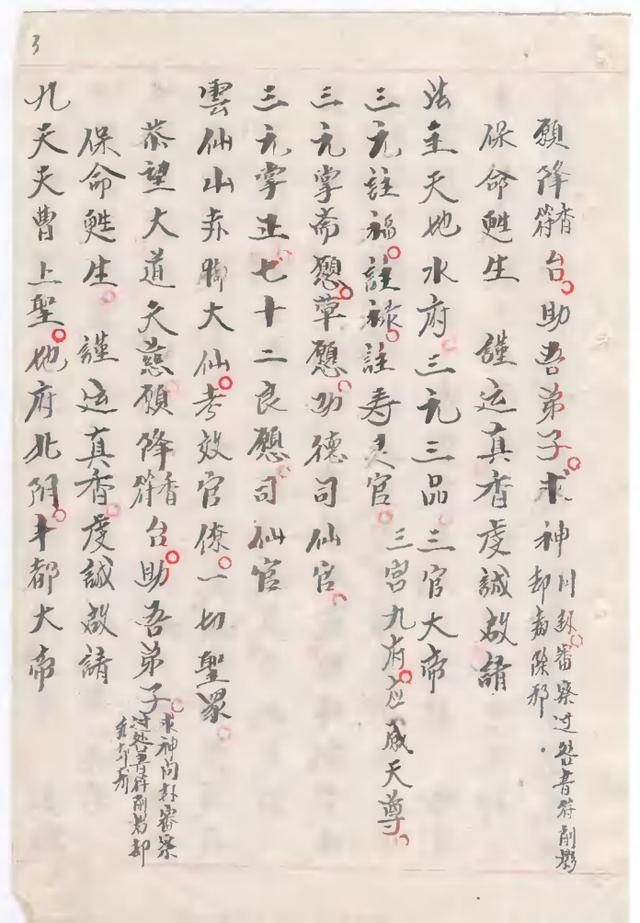 3
願降香符台助吾弟子求神問卦審察過咎書符削影却病除邪
保命甦生 謹运真香虔誠啟請
法主天地水府三元三品三官大帝
三元註福註祿註寿灵官 三宫九府应感天尊
三元掌斋愿草愿功德司仙官
三元掌正七十二良愿司仙官
雲仙山赤脚大仙考效官僚一切聖眾
恭望大道天慈願降香符台助吾弟子求神问卦審察过咎書符削影却
保命甦生 謹运真香虔誠啟請
九天天曹上聖地府北阴丰都大帝